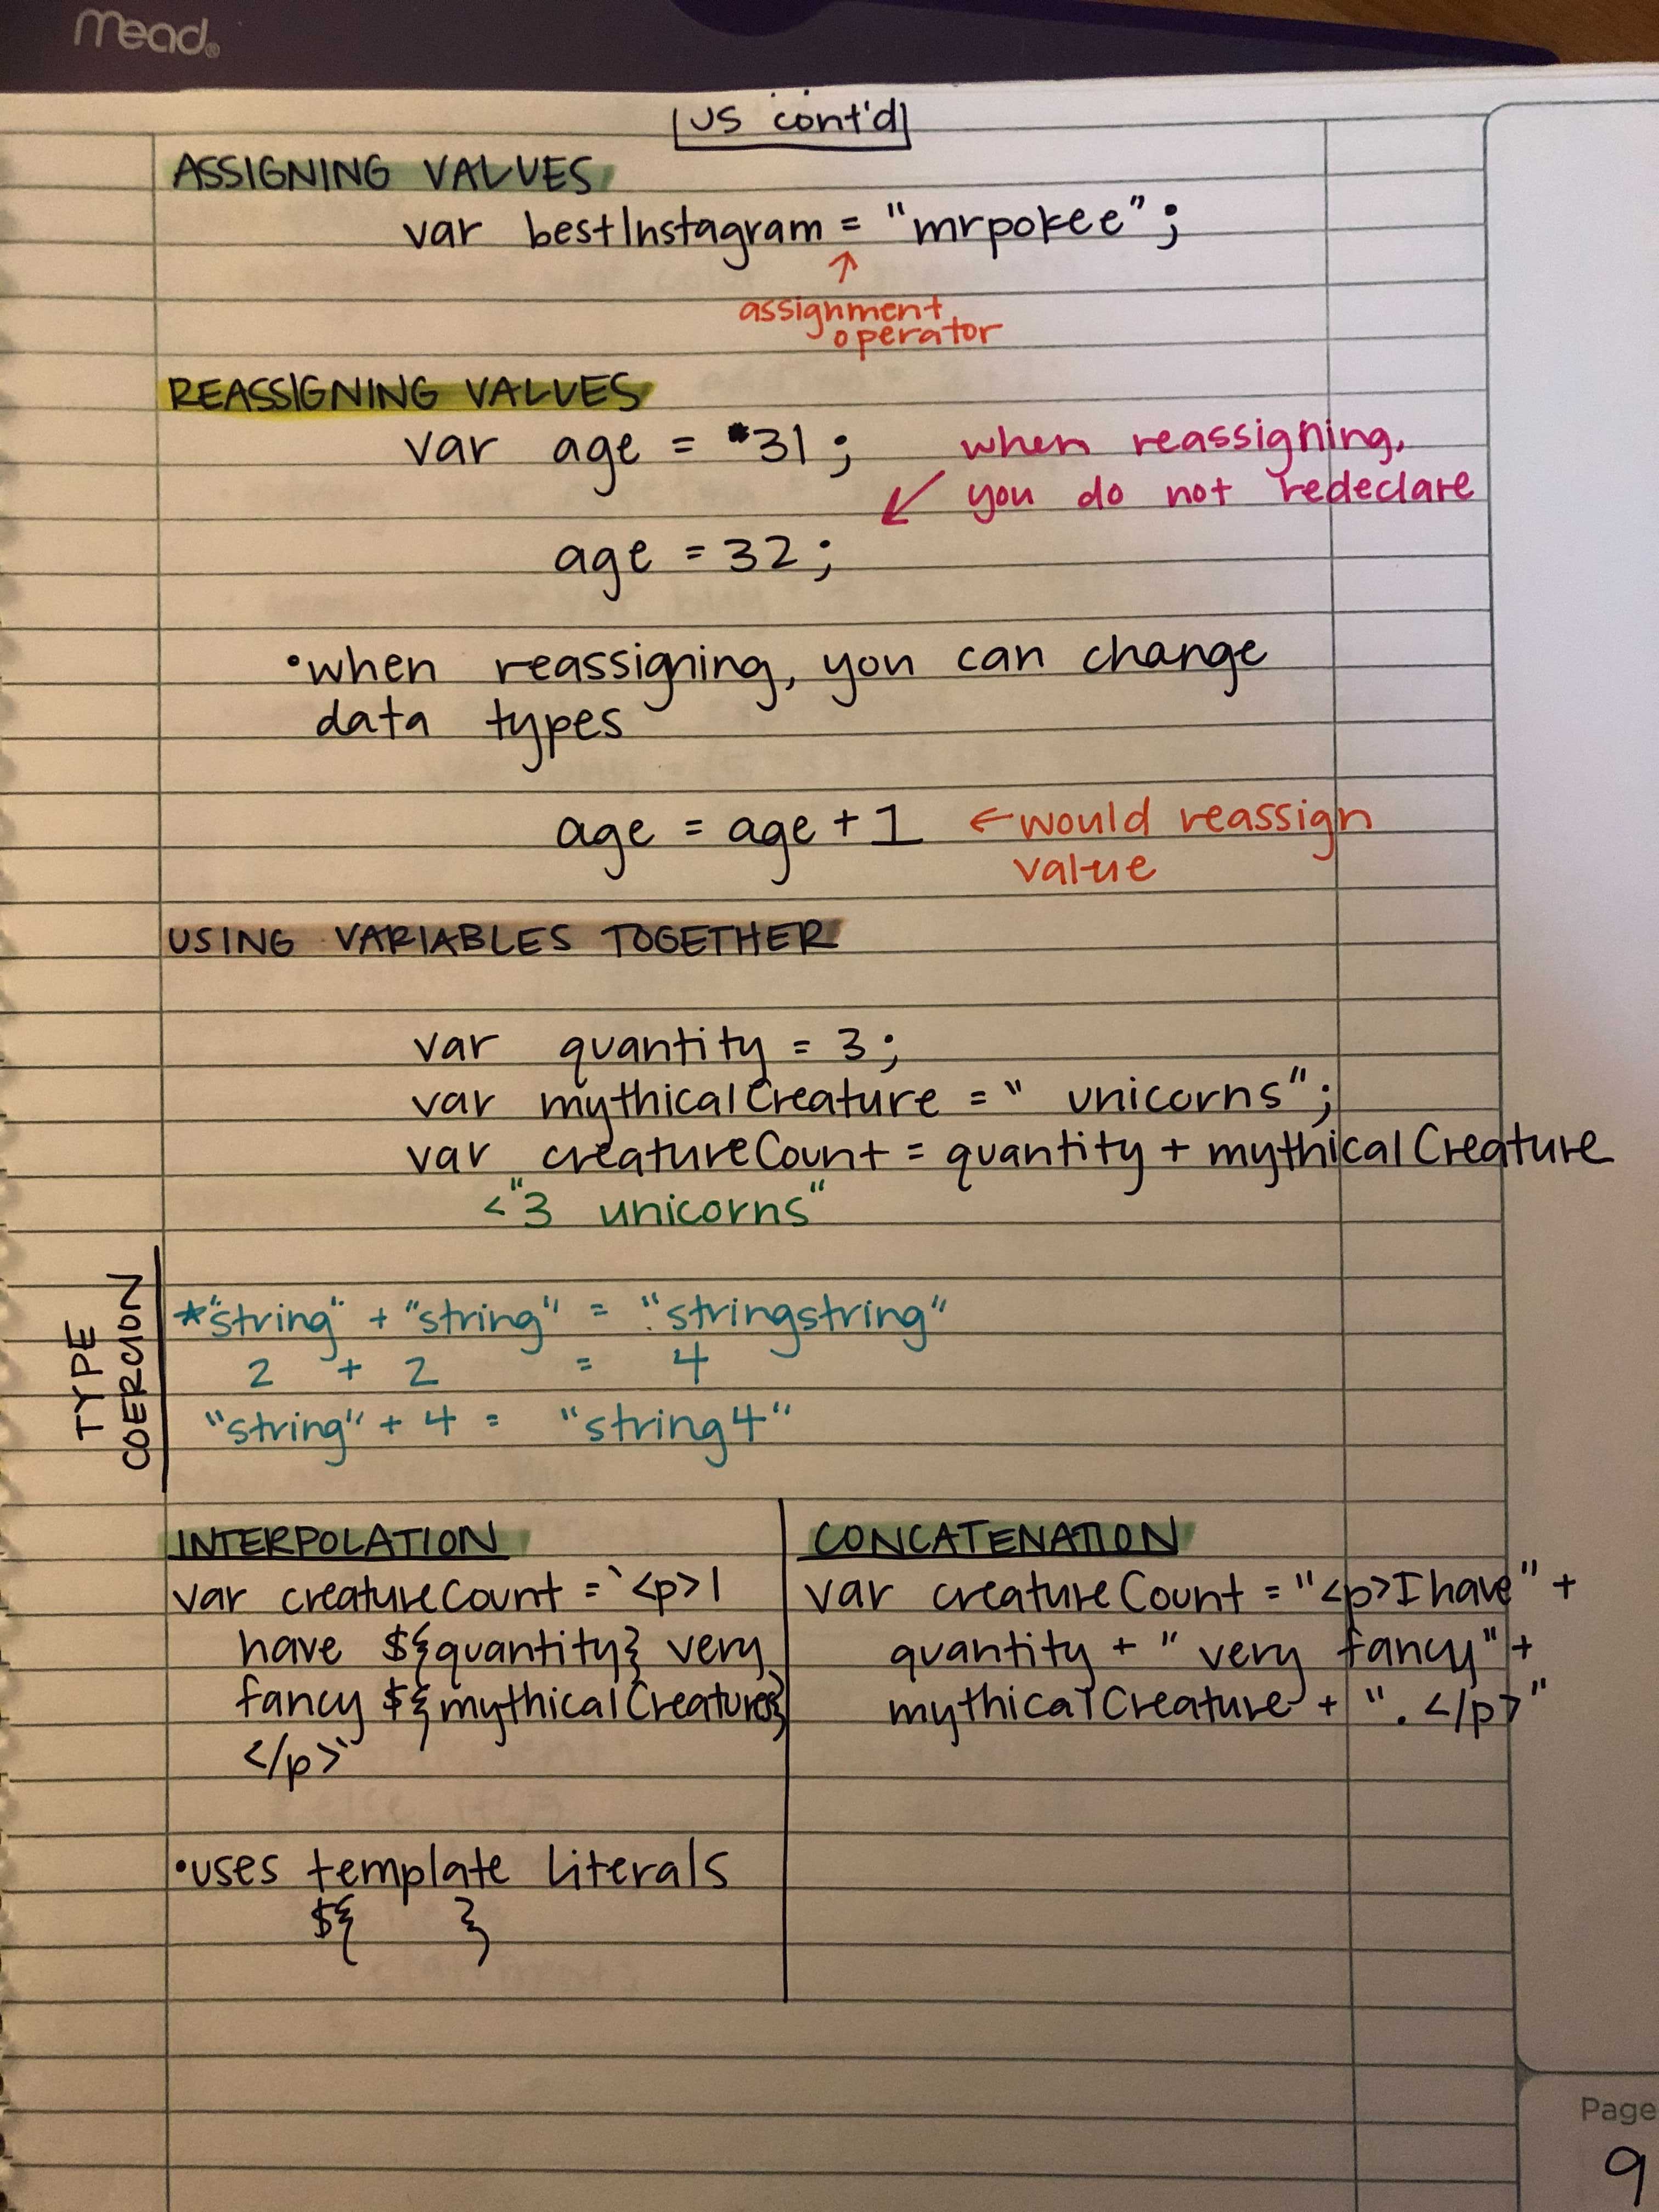 Mead®
JS cont'd
ASSIGNING VALUES
var bestInstagram = "mrpokee";
↑
assignment
operator
REASSIGNING VALUES
var age = 31; when reassigning,
↙ you do not redeclare
age = 32;
•when reassigning, you can change
data types
age = age + 1 ← would reassign
value
USING VARIABLES TOGETHER
var quantity = 3;
var mythicalCreature = " unicorns";
var creatureCount = quantity + mythicalCreature
<"3 unicorns"
TYPE
COERCION
*"string" + "string" = "stringstring"
2 + 2 = 4
"string" + 4 = "string4"
INTERPOLATION
var creatureCount = `<p>I
have ${quantity} very
fancy ${mythicalCreatures}
</p>`
•uses template literals
${ }
CONCATENATION
var creatureCount = "<p>I have" +
quantity + " very fancy" +
mythicalCreature + ". </p>"
Page
9